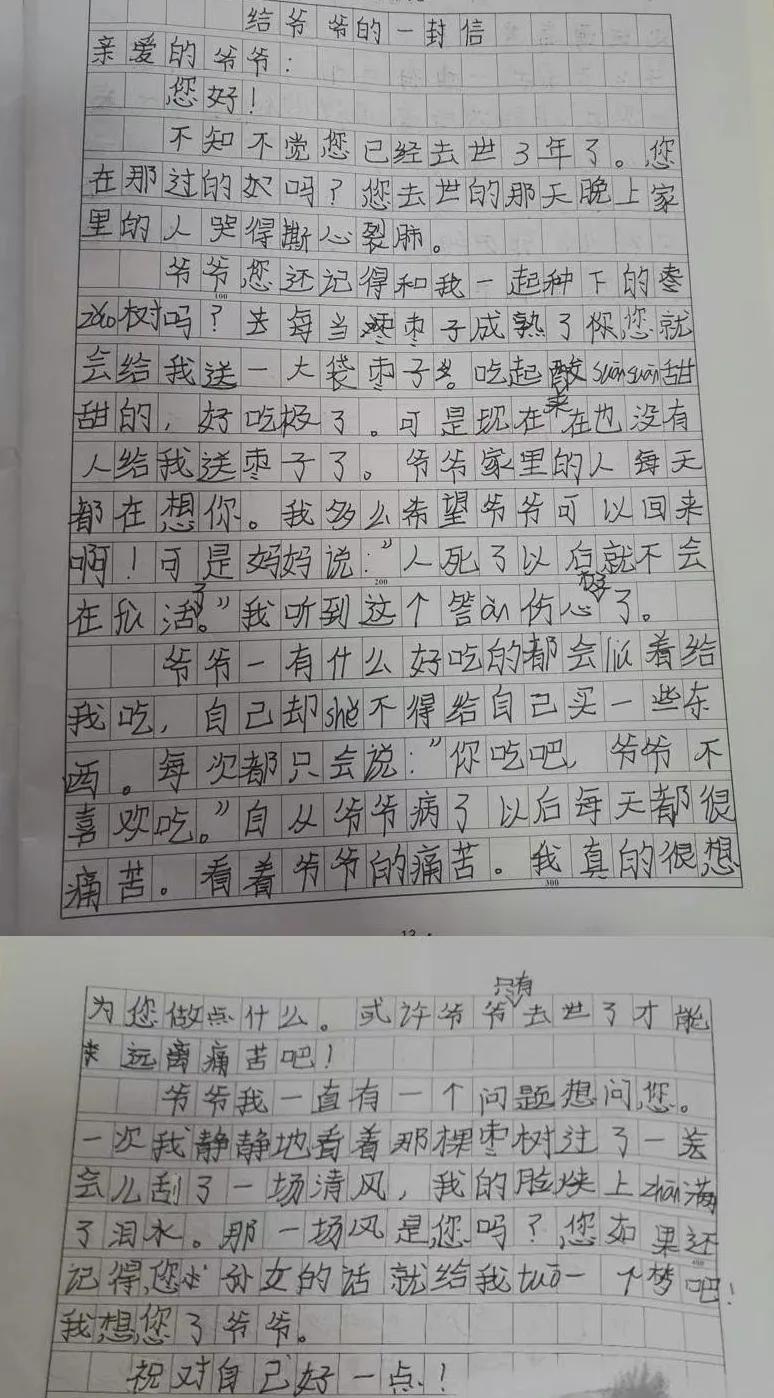 给爷爷的一封信
亲爱的爷爷：
您好！
不知不觉您已经去世3年了。您
在那过的好吗？您去世的那天晚上家
里的人哭得撕心裂肺。
爷爷您还记得和我一起种下的枣
100
zǎo树吗？去每当枣枣子成熟了你您就
会给我送一大袋枣子。吃起酸suānsuān甜
来
甜的，好吃极了。可是现在在也没有
人给我送枣子了。爷爷家里的人每天
都在想你。我多么希望爷爷可以回来
啊！可是妈妈说：”人死了以后就不会
200
了
在复活。”我听到这个答àn伤心极了。
爷爷一有什么好吃的都会liú着给
我吃，自己却shě不得给自己买一些东
西。每次都只会说：”你吃吧，爷爷不
喜欢吃。”自从爷爷病了以后每天都很
痛苦。看着爷爷的痛苦。我真的很想
300
13
只有
为您做点什么。或许爷爷去世了才能
远离痛苦吧！
爷爷我一直有一个问题想问您。
一次我静静地看着那棵枣树过了一
会儿刮了一场清风，我的脸颊上zhān满
了泪水。那一场风是您吗？您如果还
400
记得您孙女的话就给我tuō一个梦吧！
我想您了爷爷。
祝对自己好一点！